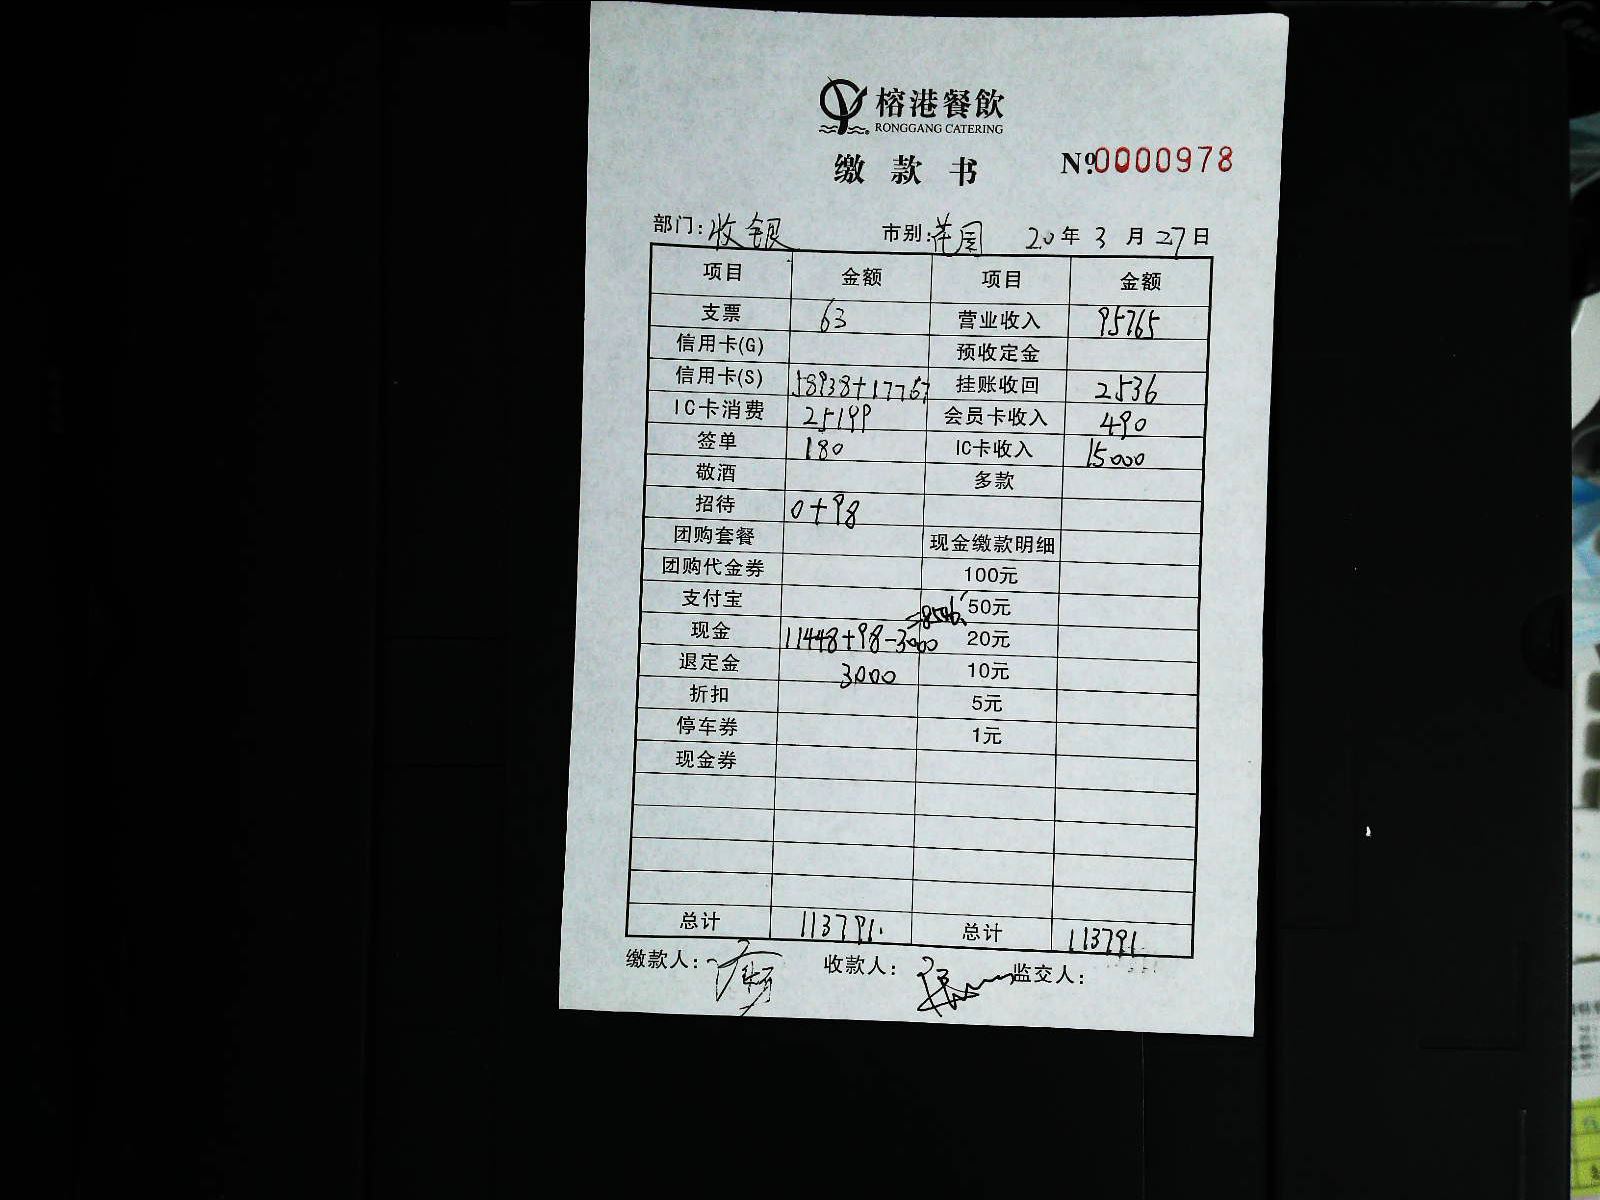 榕港餐飲
RONGGANG CATERING
缴款书 №0000978
部门: 收银 市别: 花园 20年3月27日
项目 金额 项目 金额
支票 63 营业收入 95765
信用卡(G) 预收定金
信用卡(S) 58938+17767 挂账收回 2536
IC卡消费 25199 会员卡收入 490
签单 180 IC卡收入 15000
敬酒 多款
招待 0+98
团购套餐 现金缴款明细
团购代金券 100元
支付宝 50元
现金 11448+98-3000=8546 20元
退定金 3000 10元
折扣 5元
停车券 1元
现金券
总计 113791. 总计 113791
缴款人: 收款人: 监交人: